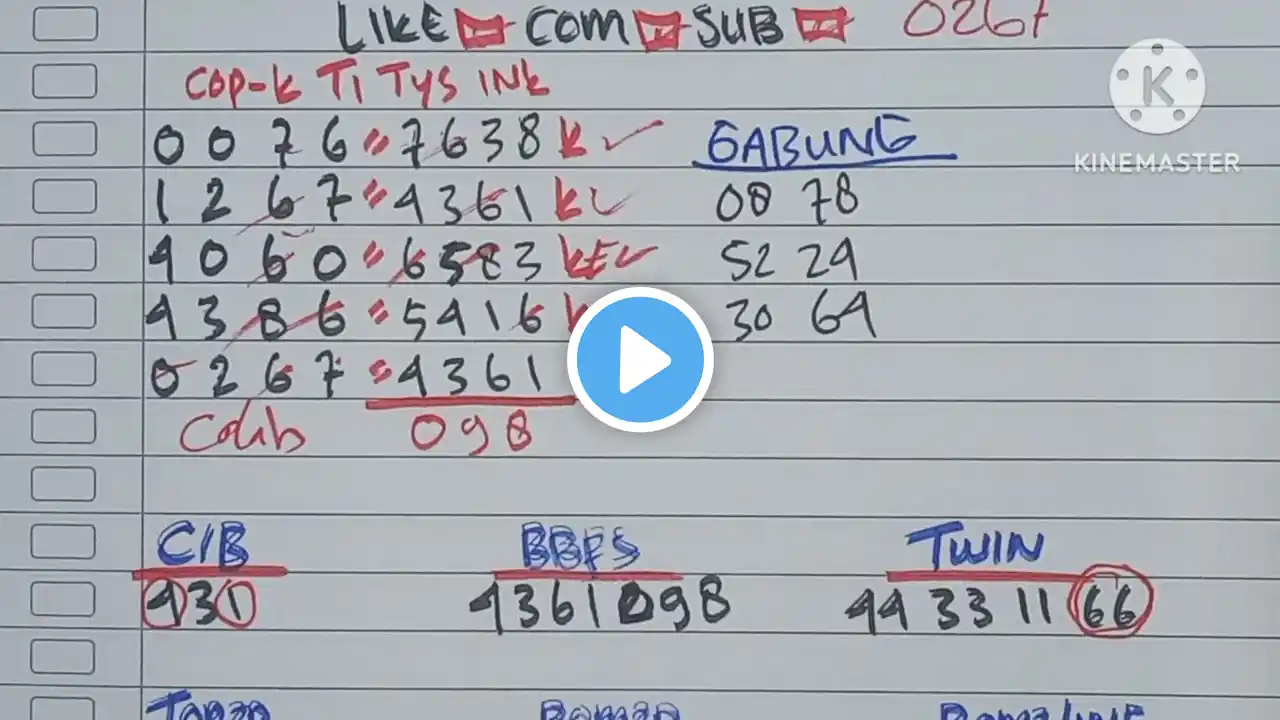 LIKE COM SUB 0267
Cop-k Ti Tys INk
0076 = 7638 k ✓ GABUNG
KINEMASTER
1267 = 4361 k ✓ 08 78
4060 = 6583 kE ✓ 52 24
4386 = 5416 k 30 64
0267 = 4361
Colib 098
C/B BBFS TWIN
431 4361098 44 33 11 66